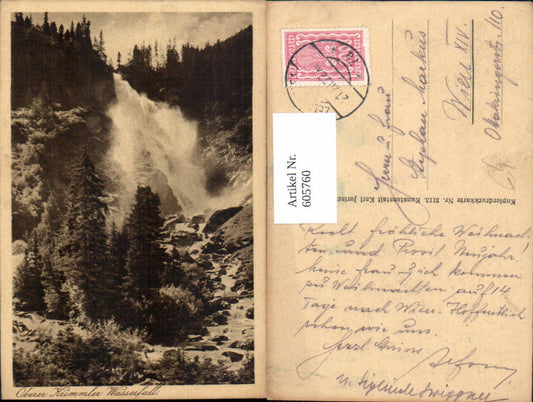 Oberer Krimmler Wasserfall.
Artikel Nr.
605760
Kupferdruckkarte Nr. 3113. Kunstanstalt Karl Jurisc
Herrn u. Frau
Stefan Markus
Wien XIV.
Ottakringerstr. 110.
Recht fröhliche Weihnach-
ten und Prosit Neujahr!
Meine Frau u. ich kommen
zu Weihnachten auf 14
Tage nach Wien. Hoffentlich
sehen wir uns.
Herzl. Grüsse
u. Sieglinde